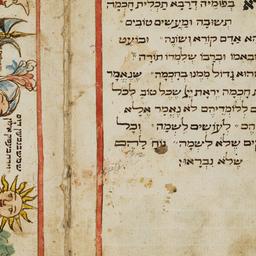 בפומיה דרבא תכלית חכמה
תשובה ומעשים טובים
הא אדם קורא ושונה
ובאמו וברבו שלמדו תורה
הוא גדול ממנו בחכמה שנאמר
חכמה יראת יי שכל טוב לכל
ללומדיהם לא נאמר אלא
הם לעושים לשמה וכל
ים שלא לשמה נוח להם
שלא נבראו